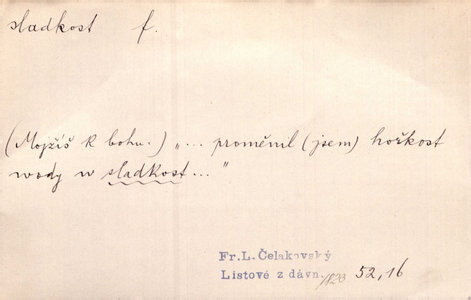 sladkost f.
(Mojžíš k bohu.) „... proměnil (jsem) hořkost
wody w sladkost..."
Fr. L. Čelakovský
Listové z dávn. /1823 52,16